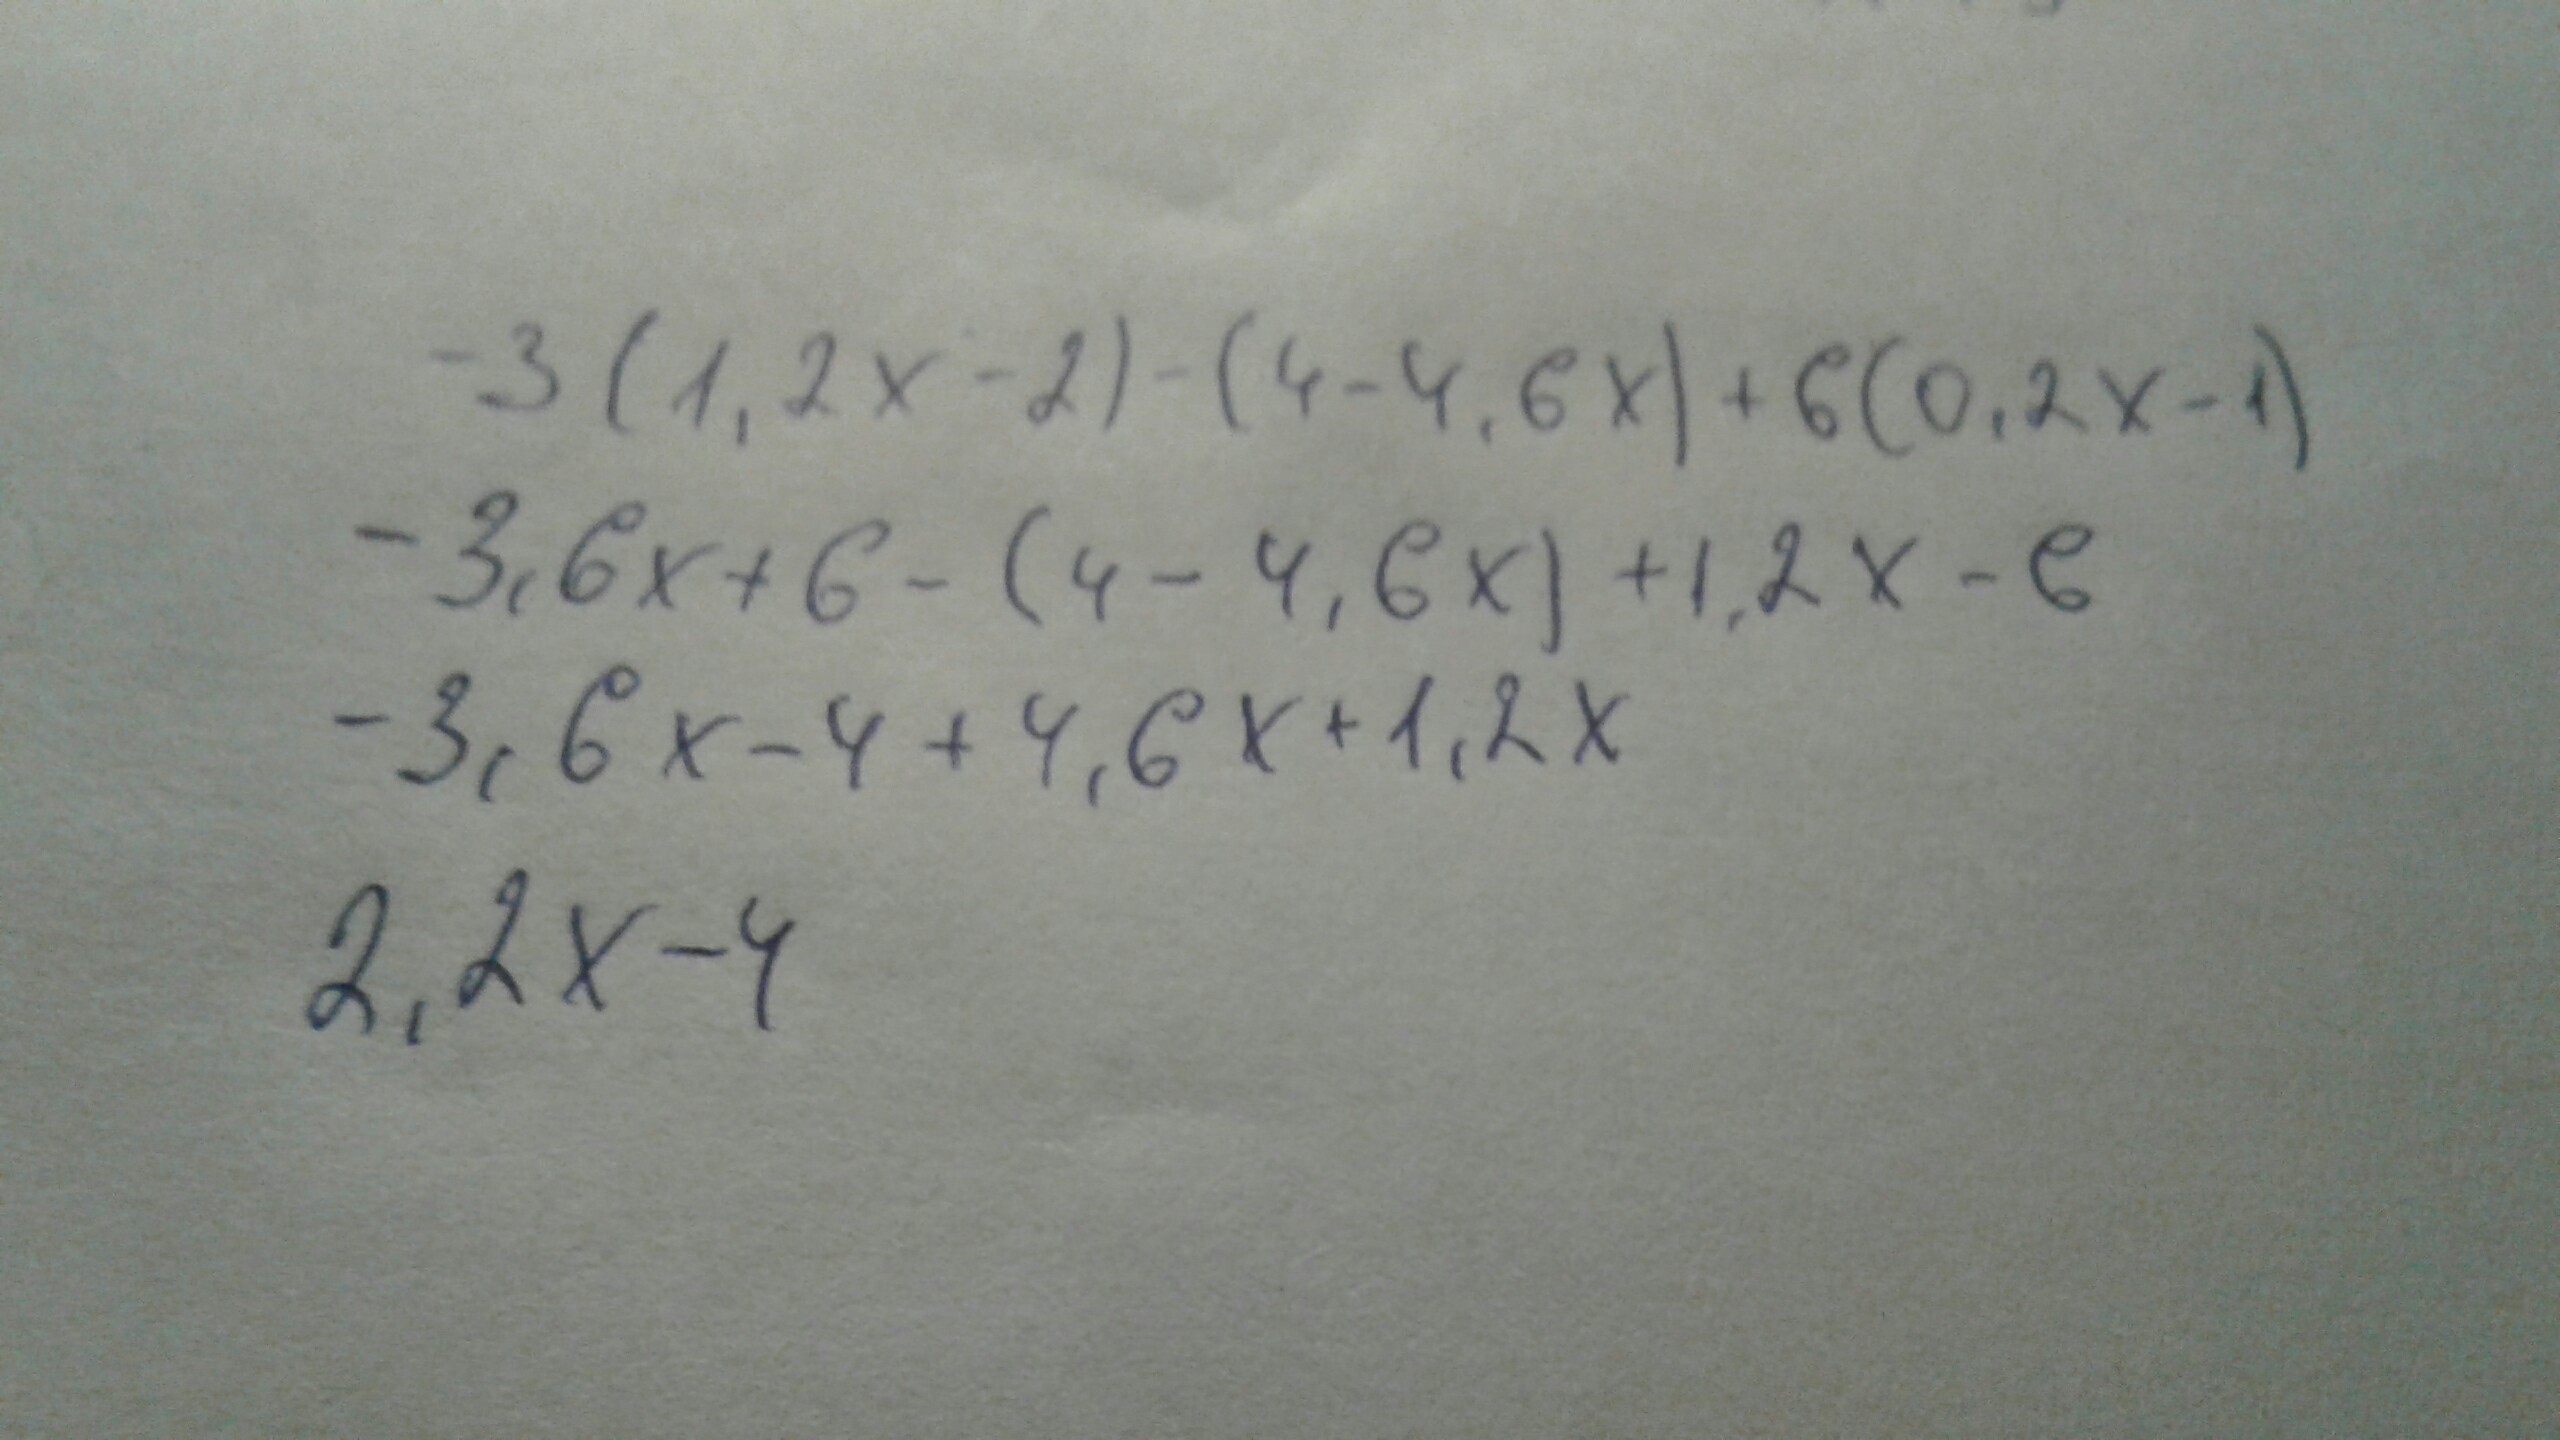 -3(1,2x-2)-(4-4,6x)+6(0,2x-1)
-3,6x+6-(4-4,6x)+1,2x-6
-3,6x-4+4,6x+1,2x
2,2x-4